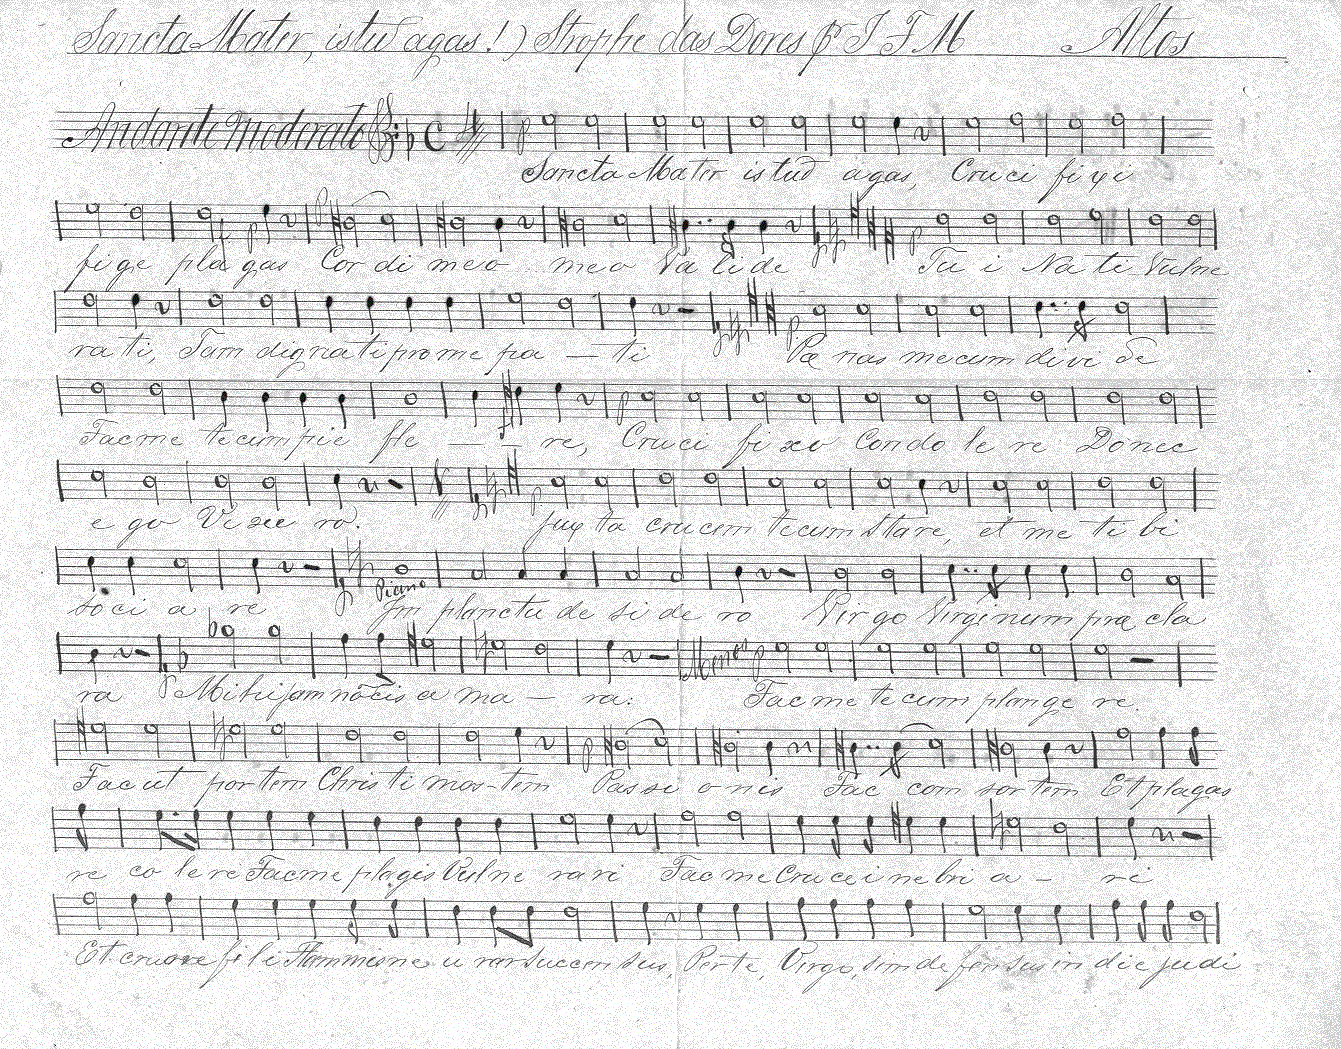 Sancta Mater, istud agas!) Strophe das Dores p. J F M Altos
Andante Moderato C 4 p
Sancta Mater istud agas, Cruci fixi
fige plagas Cordi meo meo Va li de Tu i Na ti Vulne
ra ti, Jam dignati pro me pa — ti Pœ nas mecum di vi de
Fac me tecum pie fle — — re, Cruci fi xo Condo le re Donec
e go Vi xe ro. juxta crucem tecum stare, et me ti bi
Piano
soci a re Jn planctu de si de ro Virgo Virginum præ cla
Menos p
ra Mihi jam no cis a ma — ra: Fac me te cum plange re.
Fac ut por tem Chris ti mor-tem Passi o nis Fac con sor tem Et plagas
re co le re Fac me plagis Vulne rari Fac me Cruce i ne bri a - ri
Et cruore fi li Flammis ne u rar succen sus, Per te, Virgo, sim de fen sus in die judi